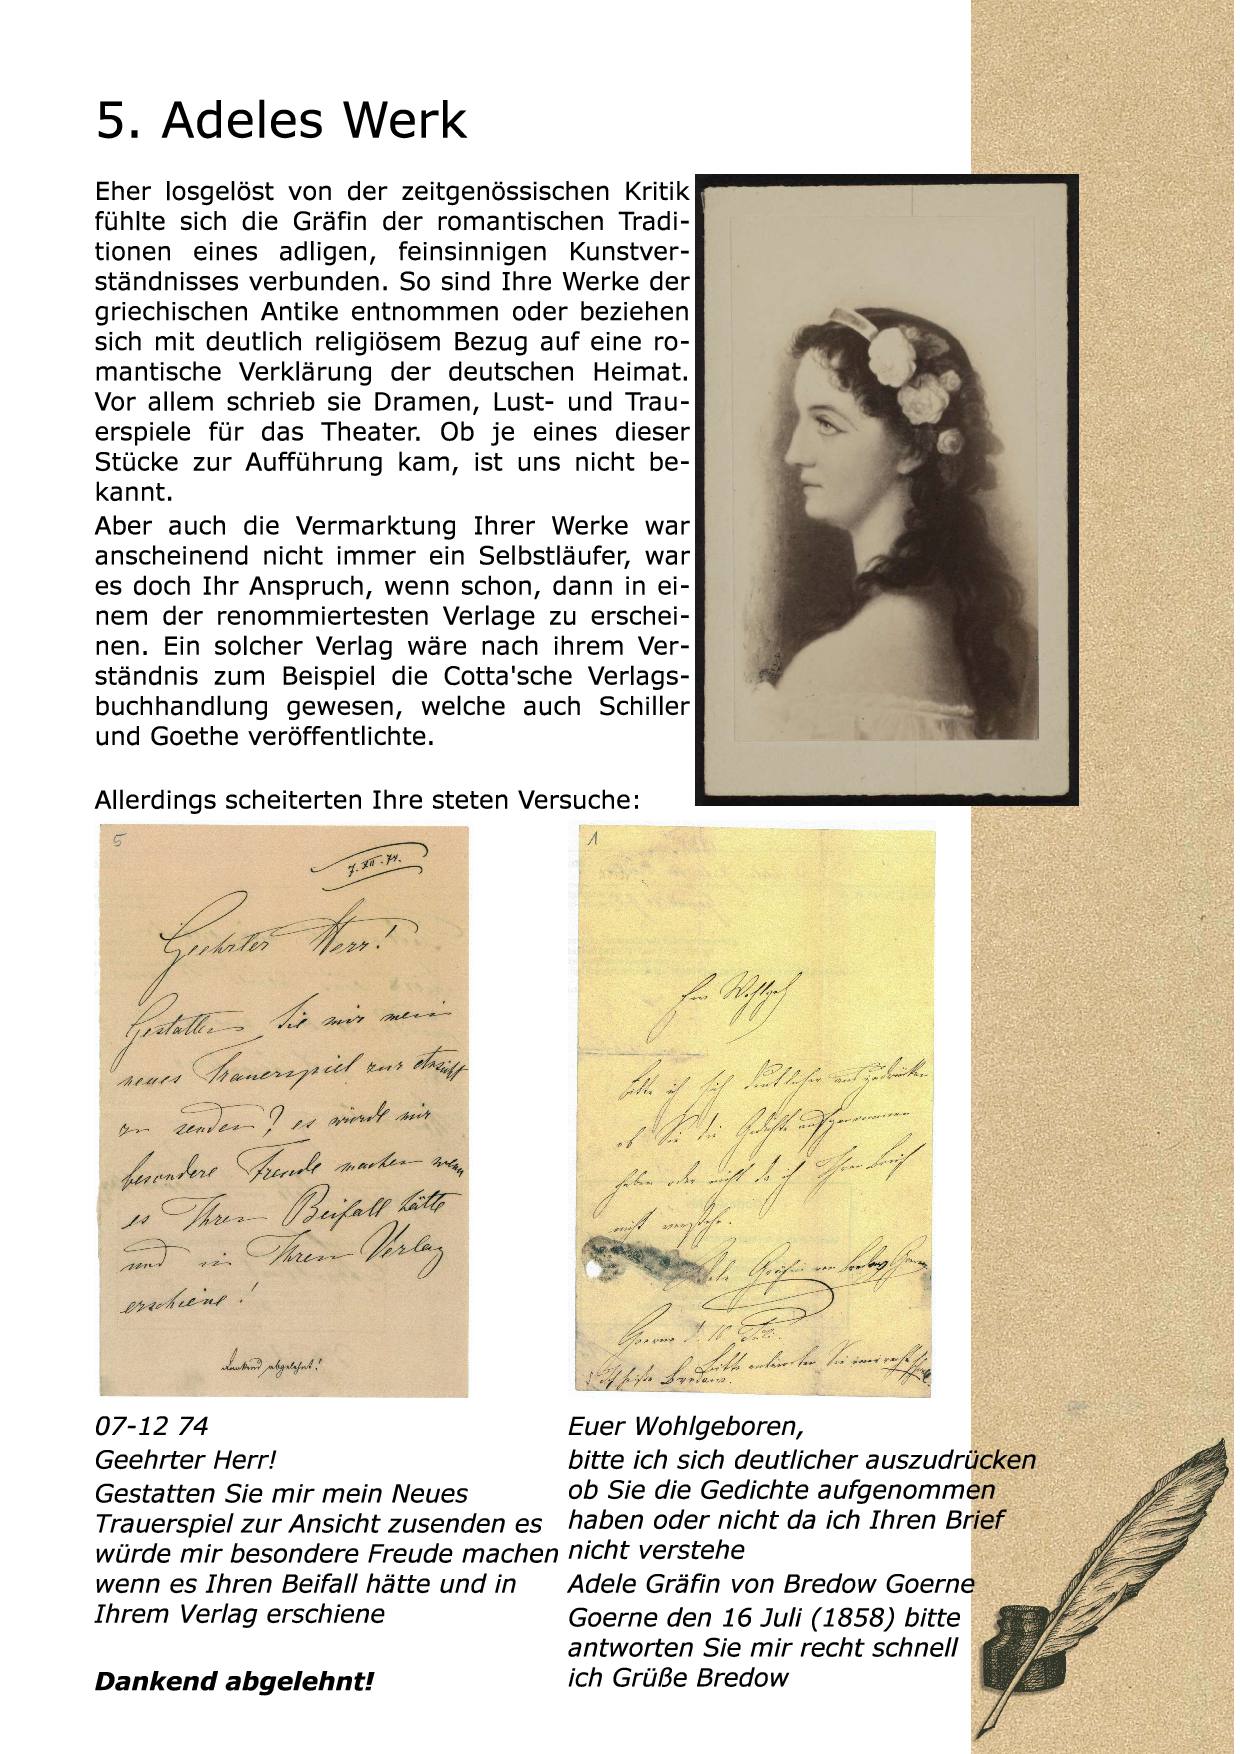 5. Adeles Werk
Eher losgelöst von der zeitgenössischen Kritik
fühlte sich die Gräfin der romantischen Tradi-
tionen eines adligen, feinsinnigen Kunstver-
ständnisses verbunden. So sind Ihre Werke der
griechischen Antike entnommen oder beziehen
sich mit deutlich religiösem Bezug auf eine ro-
mantische Verklärung der deutschen Heimat.
Vor allem schrieb sie Dramen, Lust- und Trau-
erspiele für das Theater. Ob je eines dieser
Stücke zur Aufführung kam, ist uns nicht be-
kannt.
Aber auch die Vermarktung Ihrer Werke war
anscheinend nicht immer ein Selbstläufer, war
es doch Ihr Anspruch, wenn schon, dann in ei-
nem der renommiertesten Verlage zu erschei-
nen. Ein solcher Verlag wäre nach ihrem Ver-
ständnis zum Beispiel die Cotta'sche Verlags-
buchhandlung gewesen, welche auch Schiller
und Goethe veröffentlichte.
Allerdings scheiterten Ihre steten Versuche:
5
7. XII. 74.
Geehrter Herr!
Gestatten Sie mir mein
neues Trauerspiel zur Ansicht
zu senden? es würde mir
besondere Freude machen wenn
es Ihren Beifall hätte
und in Ihrem Verlag
erschiene!
dankend abgelehnt!
1
Ew Wohlgeb
bitte ich sich deutlicher auszudrücken
ob Sie die Gedichte aufgenommen
haben oder nicht da ich Ihren Brief
nicht verstehe.
Gräfin von Bredow Goerne
Goerne d. 16 Juli
Bitte antworten Sie mir recht
ich heiße Bredow.
07-12 74
Geehrter Herr!
Gestatten Sie mir mein Neues
Trauerspiel zur Ansicht zusenden es
würde mir besondere Freude machen
wenn es Ihren Beifall hätte und in
Ihrem Verlag erschiene
Dankend abgelehnt!
Euer Wohlgeboren,
bitte ich sich deutlicher auszudrücken
ob Sie die Gedichte aufgenommen
haben oder nicht da ich Ihren Brief
nicht verstehe
Adele Gräfin von Bredow Goerne
Goerne den 16 Juli (1858) bitte
antworten Sie mir recht schnell
ich Grüße Bredow